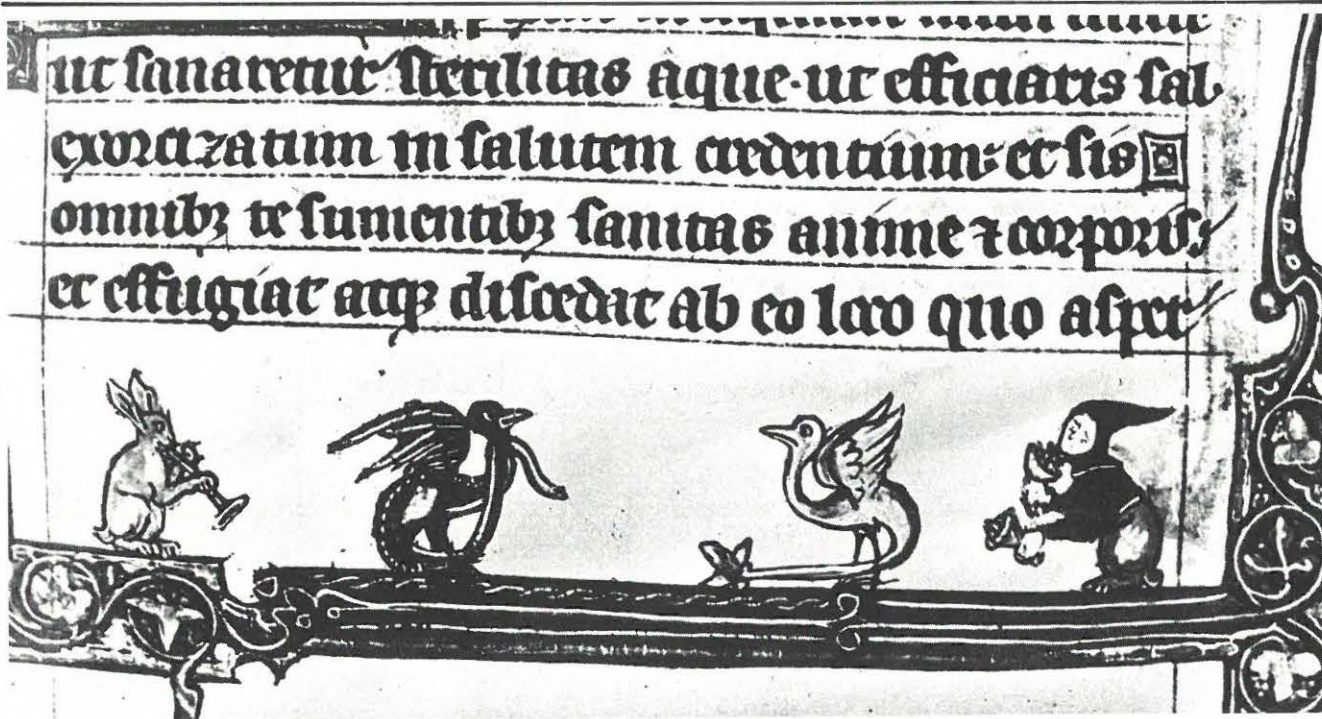 ut sanaretur sterilitas aque·ut efficiatis sal
exorcizatum in salutem credentium: et sis
omnibꝫ te sumentibꝫ sanitas anime ⁊ corporis:
et effugiat atqꝫ discedat ab eo loco quo asper